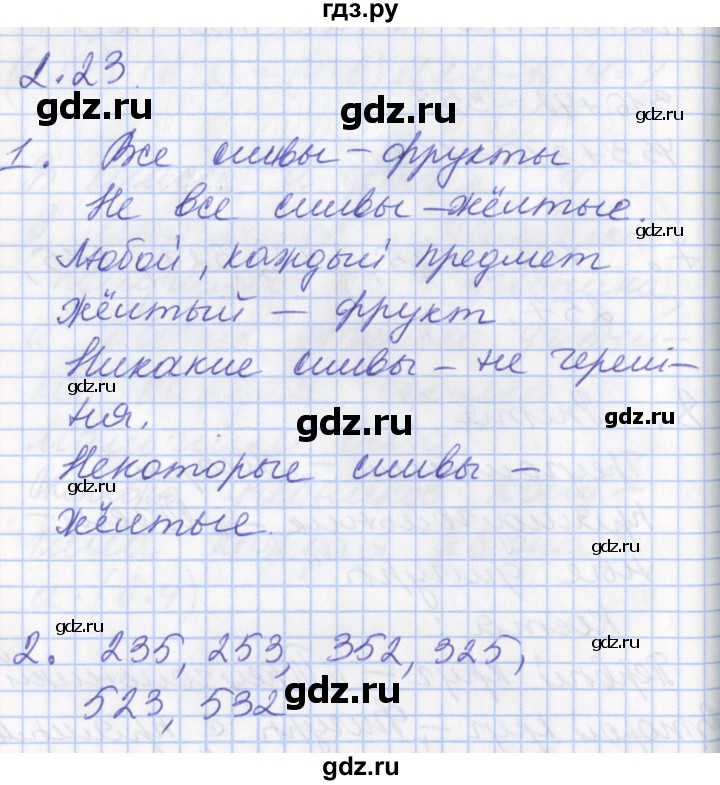 гдз.ру
2.23
gdz.ru gdz.ru
1. Все сливы – фрукты
gdz.ru
Не все сливы – жёлтые.
gdz.ru
Любой, каждый предмет
жёлтый – фрукт
Никакие сливы – не череш-
gdz.ru
ня.
gdz.ru
gdz.ru
Некоторые сливы –
gdz.ru
жёлтые.
gdz.ru
gdz.ru
gdz.ru
2. 235, 253, 352, 325,
523, 532
gdz.ru
gdz.ru